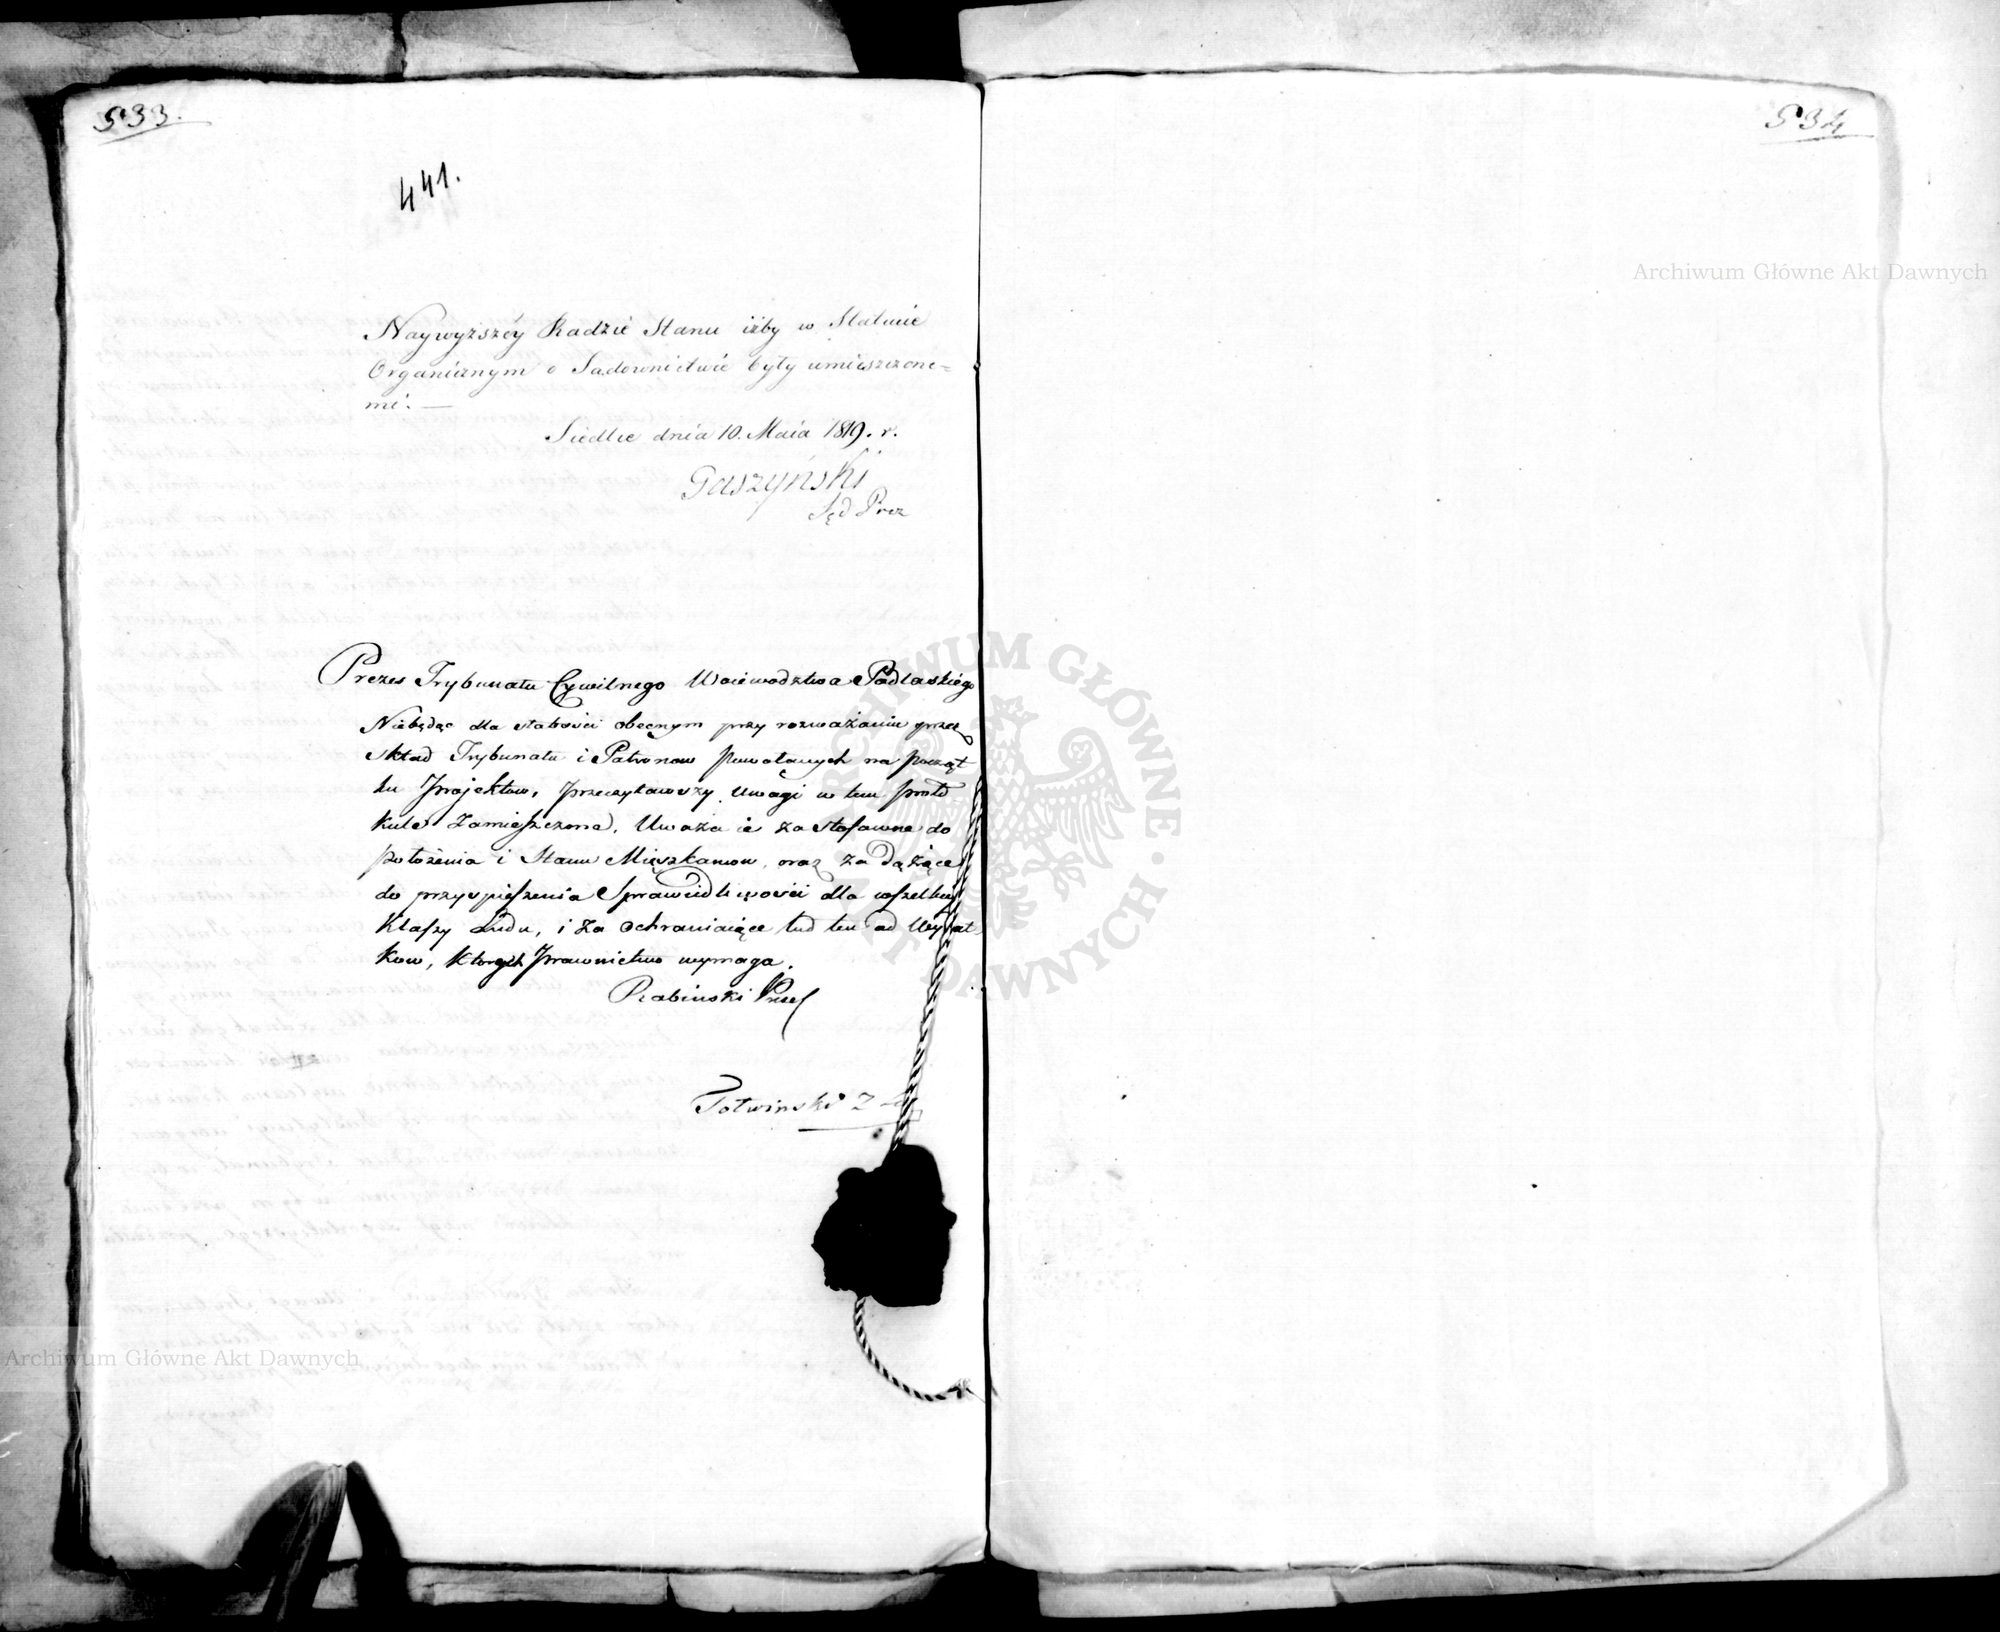 533.
441.
Naywyższéy Radzie Stanu iżby w Statucie
Organicznym o Sądownictwie były umieszczone=
mi. —
Siedlce dnia 10. Maia 1819. r.
Gaszyński
Sęd Prez
Prezes Trybunału Cywilnego Woiewodztwa Podlaskiego
Niebędąc dla słabości obecnym przy rozważaniu przez
skład Trybunału i Patronow powołanych na począt
ku Projektow, przeczytawszy Uwagi w tem proto
kule zamieszczone, Uważa ie za stosowne do
położenia i Stanu Mięszkancow, oraz za dążące
do przyspieszenia Sprawiedliwości dla wszelkiey
Klassy Ludu, i za ochraniaiące lud ten od Wydat
kow, ktorych Prawnictwo wymaga.
Rabinski Prezes
534
Archiwum Główne Akt Dawnych
ARCHIWUM GŁÓWNE AKT DAWNYCH
Archiwum Główne Akt Dawnych